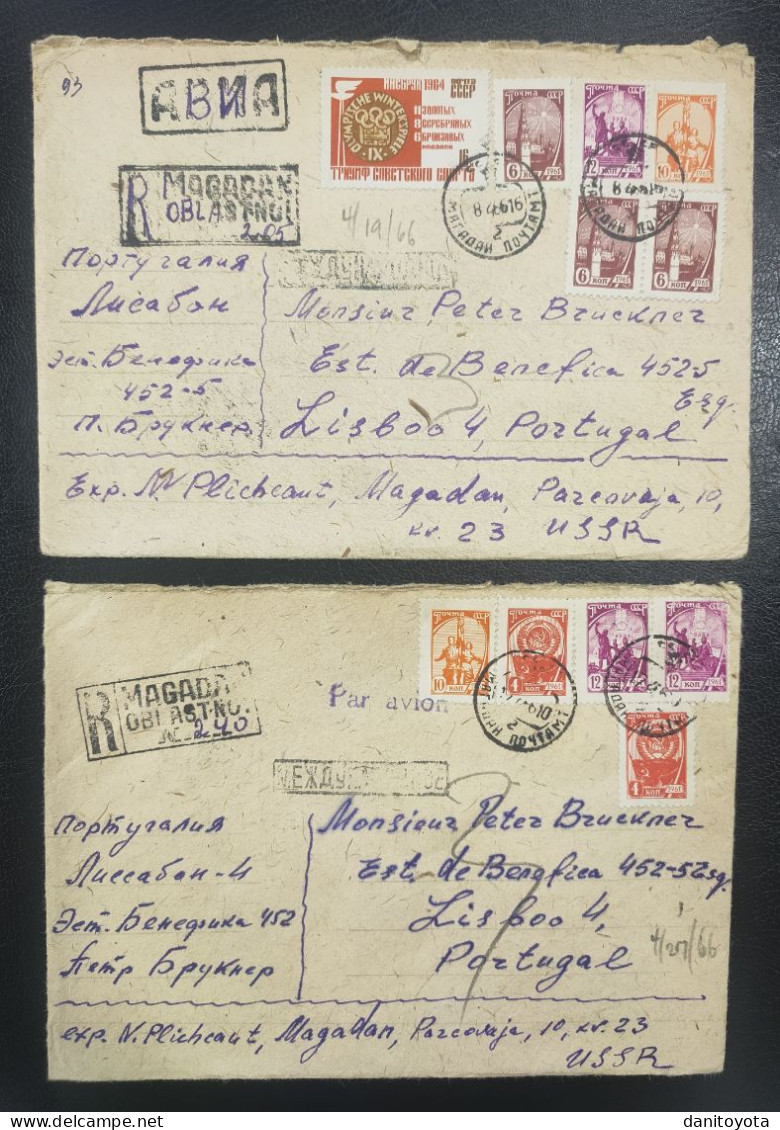 93
АВИА
ИНСБРУК 1964 ПОЧТА СССР
OLYMPISCHE WINTERSPIELE
IX
11 ЗОЛОТЫХ
8 СЕРЕБРЯНЫХ
6 БРОНЗОВЫХ
МЕДАЛЕЙ
16
ТРИУМФ СОВЕТСКОГО СПОРТА
ПОЧТА СССР
6 КОП 1961
ПОЧТА СССР
12 1961
ПОЧТА СССР
10 1961
МАГАДАН ПОЧТАМТ
МАГАДАН ПОЧТАМТ
6 КОП 1961
6 КОП 1961
R MAGADAN
OBLASTNOI
205
4/19/66
Португалия
Лисабон
Эст. Бенефика
452-5
П. Брукнер
Monsieur Peter Bruckner
Est. de Benefica 452-5
Esq.
Lisboo 4, Portugal
Exp. N Plicheaut, Magadan, Parcovaja, 10,
kv. 23 USSR
ПОЧТА СССР
10 КОП 1961
ПОЧТА СССР
4 КОП 1961
ПОЧТА СССР
12 КОП 1961
ПОЧТА СССР
12 КОП 1961
ПОЧТА СССР
4 КОП 1961
R MAGADA
OBLASTNO.
240
Par avion
МАГАДАН ПОЧТАМТ
Португалия
Лиссабон-4
Эст. Бенефика 452
Петр Брукнер
Monsieur Peter Bruckner
Est. de Benefica 452-5 Esq.
Lisboo 4,
Portugal
4/27/66
exp. N. Plicheaut, Magadan, Parcovaja, 10, kv. 23
USSR
danitoyota